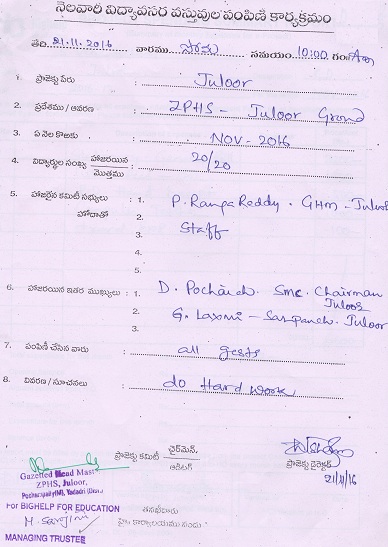 నెలవారీ విద్యావసర వస్తువుల పంపిణి కార్యక్రమం
తేది 21.11.2016 వారము సోమ సమయం 10:00 గం Am
1. ప్రాజెక్టు పేరు : Juloor
2. ప్రదేశము / ఆవరణ : ZPHS - Juloor Ground
3. ఏ నెల కొఱకు : NOV - 2016
4. విద్యార్థుల సంఖ్య హాజరయిన / మొత్తము : 20/20
5. హాజరైన కమిటీ సభ్యులు : 1. P. Ranga Reddy - GHM - Juloor
హోదాతో 2.
3. Staff
4.
5.
6. హాజరయిన ఇతర ముఖ్యులు : 1. D. Pochaiah SMC. Chairman
Juloor
2. G. Laxmi - Sarpanch. Juloor
3.
7. పంపిణీ చేసిన వారు : all gests
8. వివరణ / సూచనలు : do Hard work
ప్రాజెక్టు కమిటీ చైర్‌మెన్,
ఆడిటర్
ప్రాజెక్టు డైరెక్టర్
21/11/16
Gazetted Head Mast
ZPHS, Juloor,
Pochampally(M), Yadadri (Dist.)
For BIGHELP FOR EDUCATION
M. Sarojini
MANAGING TRUSTEE
తనఖీదారు
హై కార్యాలయము నందు